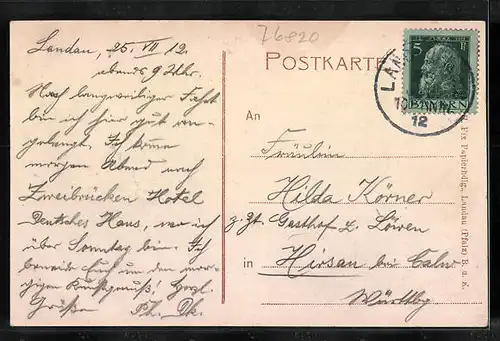 76820
Landau, 25. VII 12.
abends 9 Uhr.
Nach langweiliger Fahrt
bin ich hier gut an-
gelangt. Ich komme
morgen Abend nach
Zweibrücken Hotel
Deutsches Haus, wo ich
über Sonntag bin. Ich
beneide Euch um den mor-
gigen Kunstgenuß! Herzl.
Grüßen Ph. Dk.
POSTKARTE
5 Pf
BAYERN
LAN
12
An
Fräulein
Hilda Körner
z. Zt. Gasthof z. Löwen
in Hirsau bei Calw
Württbg
Papierhdlg., Landau (Pfalz)